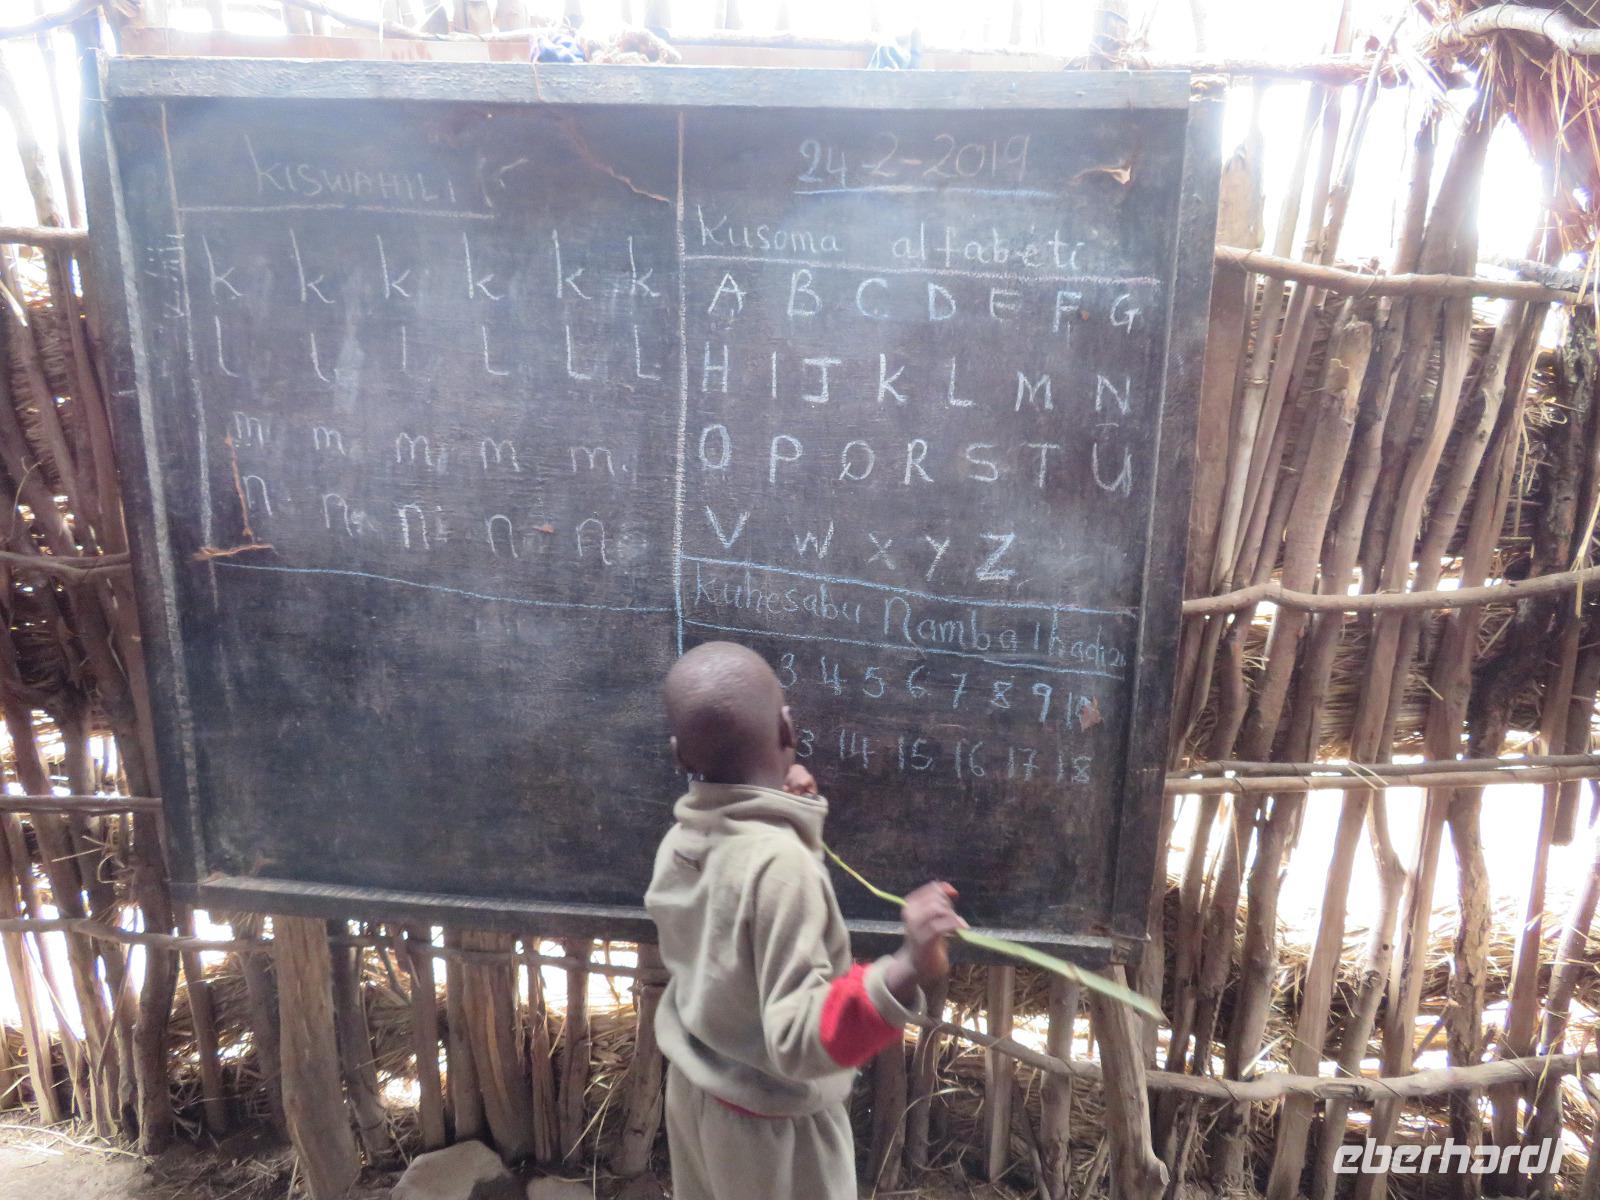 KISWAHILI
k k k k k k
L L L L L L
m m m m m
n n n n n
24-2-2019
Kusoma alfabeti
A B C D E F G
H I J K L M N
O P Q R S T U
V W X Y Z
Kuhesabu Namba 1 hadi
3 4 5 6 7 8 9 10
3 14 15 16 17 18
eberhardt